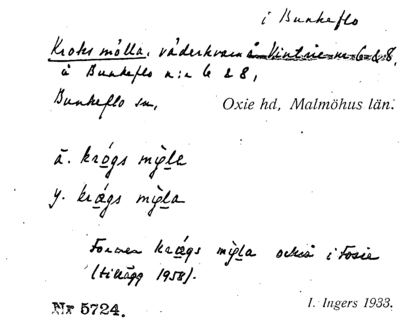 i Bunkeflo
Kroks mölla, väderkvarn å Vintrie nr 6 & 8,
å Bunkeflo n:r 6 & 8,
Bunkeflo sn,
Oxie hd, Malmöhus län.
ä. krǫ́gs mỳlla
y. krǽgs mỳlla
Formen krǽgs mỳlla också i Fosie
(tillägg 1958).
Nr 5724.
I. Ingers 1933.